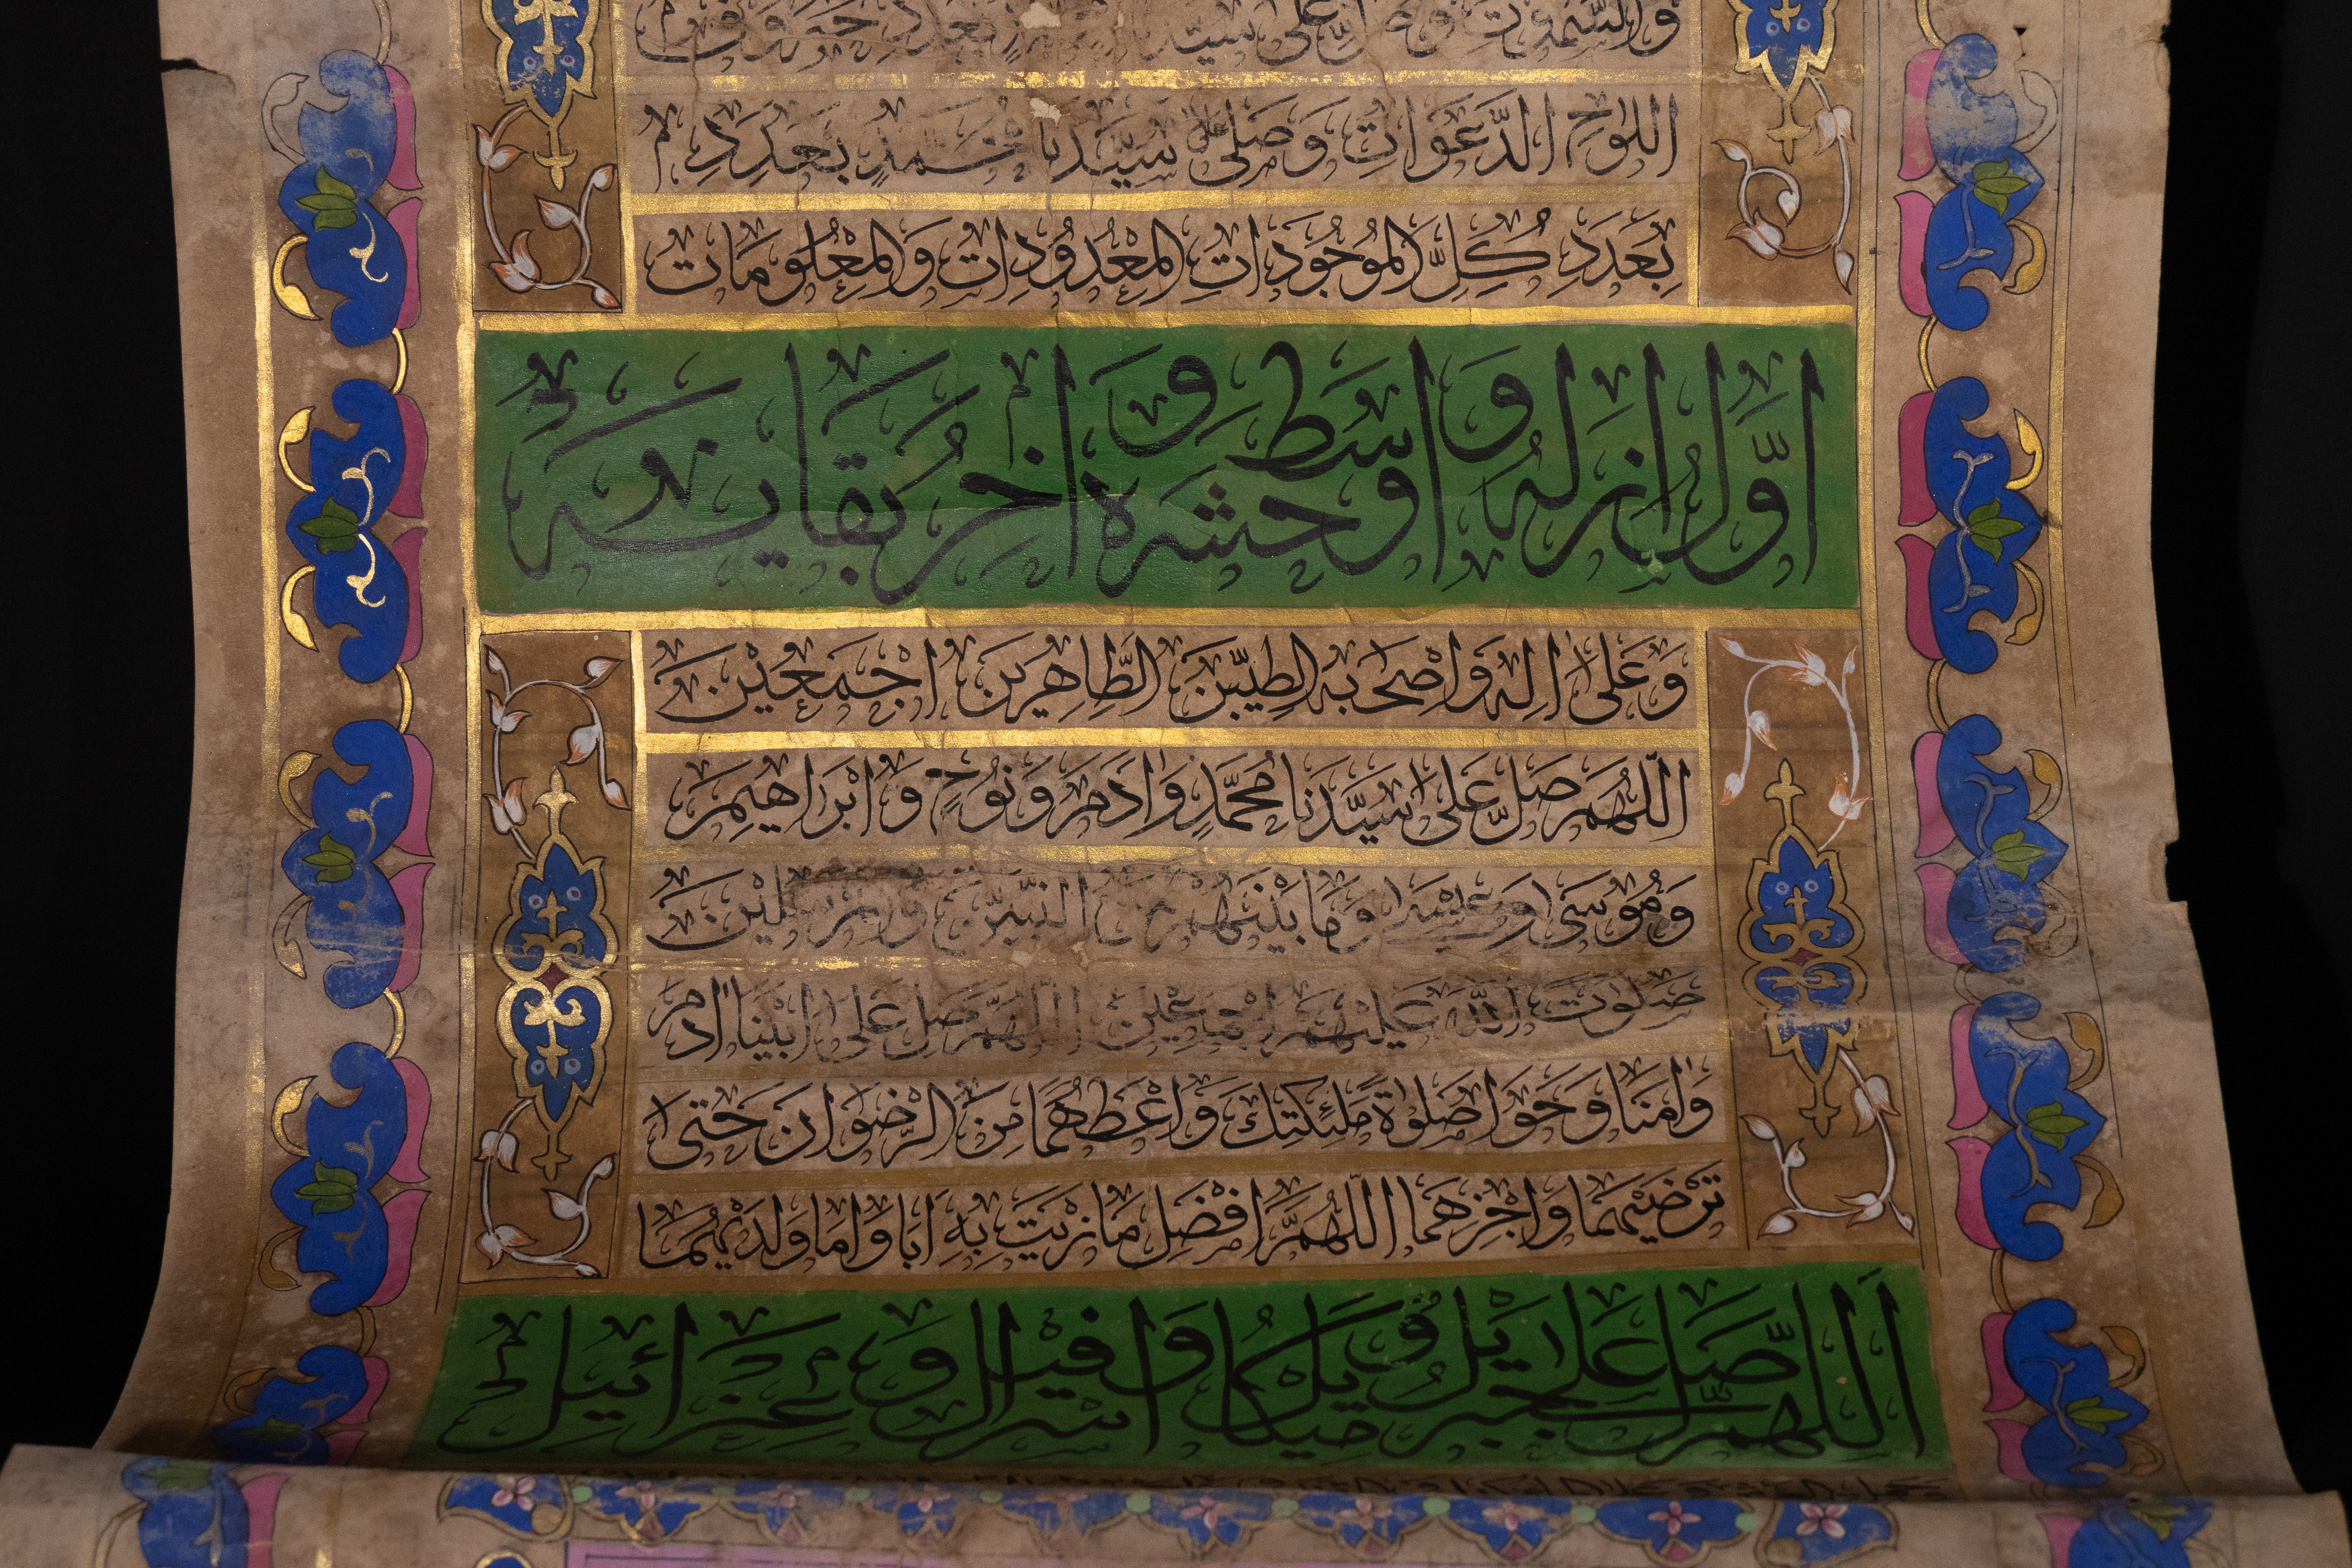 اللوح الدَّعَوَاتِ وَصَلِّ سَيِّدِنَا بِعَدَدِ
بِعَدَدِ كُلِّ الْمَوْجُودَاتِ الْمَعْدُودَاتِ وَالْمَعْلُومَاتِ
اوّل ازله و اوسط حشره و اخر بقايه
وَعَلَى الِهِ وَاصْحَابِهِ الطِّيبّينَ الطَّاهِرِينَ اجْمَعِيْنَ
اَللّٰهُمَّ صَلِّ عَلَى سَيِّدَنَا مُحَمَّدٍ وَادَمَ وَنُوحٍ وَابْرَاهِيمَ
وَمُوسَى وَمَا بَيْنَهُمْ النَّبيّنَ
صَلَوٰت اللّٰه عَلَيْهِمْ اجْمَاعِينَ اللّٰهُمَّ صَلِّ عَلَى ابْيِنَا ادَمَ
وَامِّنَا وَحَوَا صَلوٰةَ مَلٰئِكَتِكَ وَاعْطِهُمَا مِنَ الرِّضْوَانَ حَتَّى
تَرْضَيْهِمَا وَاجْزِهِمَا اللّٰهُمَّ افْضَلَ مَا جَزَيْتَ بِهِ اَبَا وَامَا
اَللّهمّ صلّ على جبريل و ميكايل و اسرافيل و عزرائيل